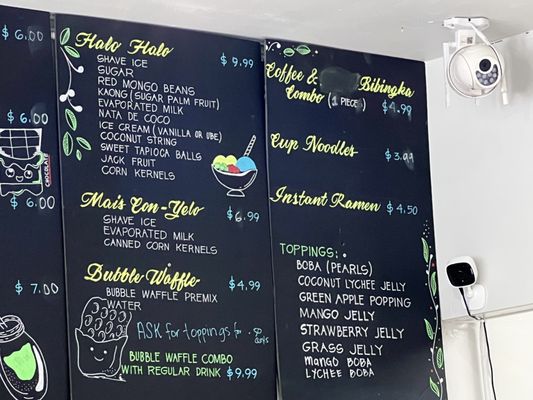 $ 6.00
$ 6.00
CHOCOLATE
$ 6.00
$ 7.00
Halo Halo $ 9.99
SHAVE ICE
SUGAR
RED MONGO BEANS
KAONG (SUGAR PALM FRUIT)
EVAPORATED MILK
NATA DE COCO
ICE CREAM (VANILLA OR UBE)
COCONUT STRING
SWEET TAPIOCA BALLS
JACK FRUIT
CORN KERNELS
Mais Con-Yelo $ 6.99
SHAVE ICE
EVAPORATED MILK
CANNED CORN KERNELS
Bubble Waffle $ 4.99
BUBBLE WAFFLE PREMIX
WATER
ASK for toppings
BUBBLE WAFFLE COMBO
WITH REGULAR DRINK $ 9.99
Coffee & Bibingka
Combo (1 PIECE) $ 4.99
Cup Noodles $ 3.99
Instant Ramen $ 4.50
TOPPINGS:
BOBA (PEARLS)
COCONUT LYCHEE JELLY
GREEN APPLE POPPING
MANGO JELLY
STRAWBERRY JELLY
GRASS JELLY
MANGO BOBA
LYCHEE BOBA